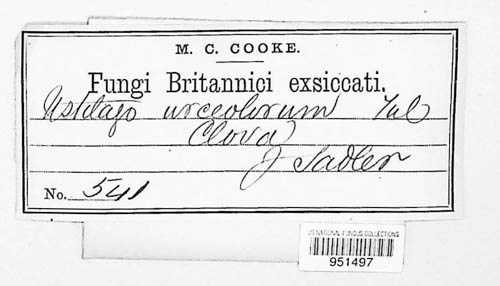 M. C. COOKE.
Fungi Britannici exsiccati.
Ustilago urceolorum Tul
Clova
J Sadler
No. 541
US NATIONAL FUNGUS COLLECTIONS
951497